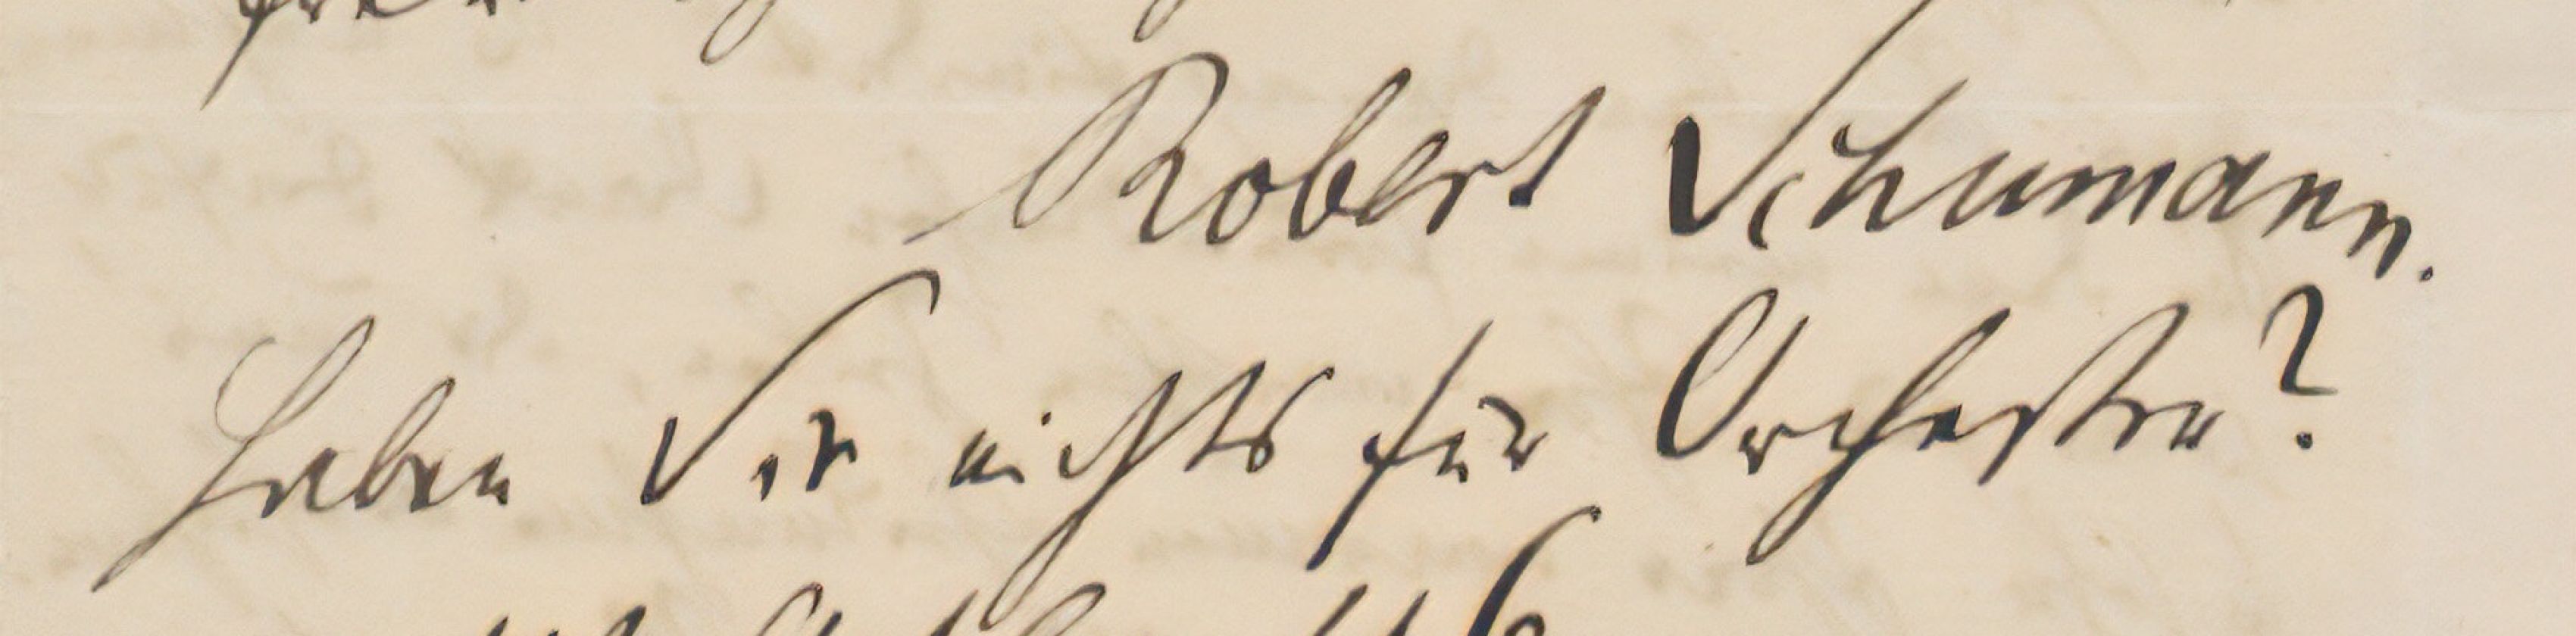 Robert Schumann.
Haben Sie nichts für Orchester?